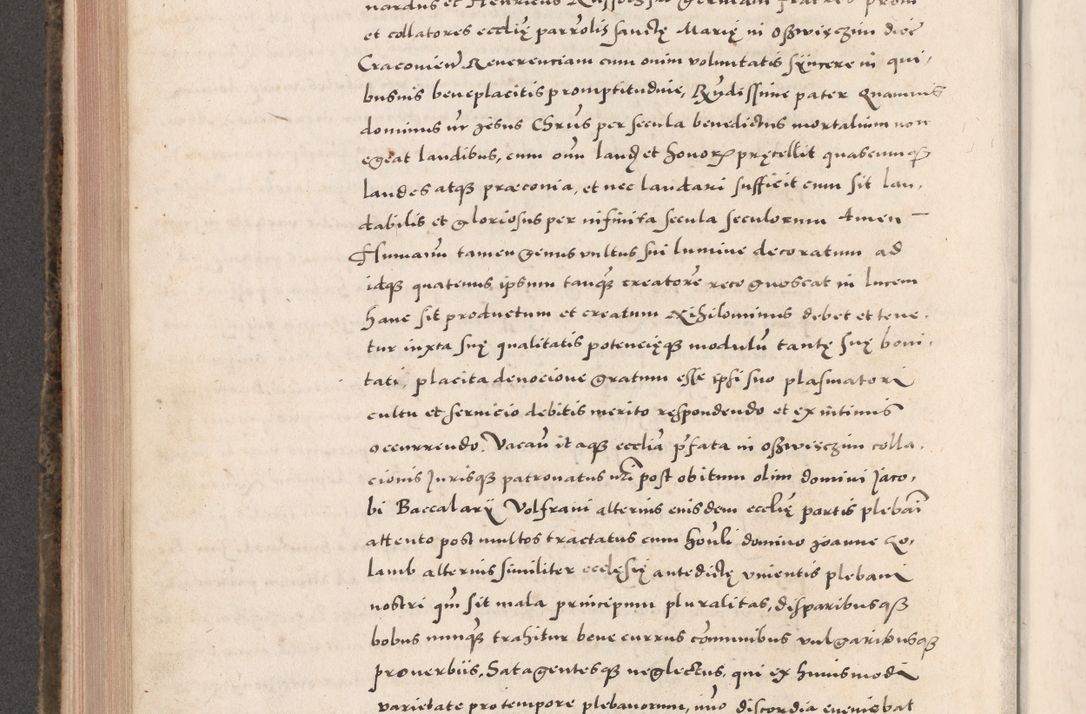 nardus et Henricus germani fratres
et collatores ecclię parrolis sanctę Marię in Oszwięczim dioc
Cracovien Reverenciam cum onim voluntatis syncere in qui,
busvis beneplacitis promptitudine, Rudissime pater Quamvis
dominus nr Jesus Chrus per secula benedictus mortalium non
egeat laudibus, cum oim laud et honor pręcellit quascumq
laudes atq præconia, et nec laudari sufficit cum sit lau,
dabilis et gloriosus per infinita secula seculorum Amen —
Humanu tamen genus vultus sui lumine decoratum ad
idq quatenus ipsum tanq creatore recognoscat in lucem
hanc sit productum et creatum Nihilominus debet et tene,
tur iuxta suę qualitatis potencięq modulu tantę suę boni,
tati, placita devocione gratum esse ipsi suo plasmatori
cultu et servicio debitis merito respondendo et ex intimis
occurrendo. Vacan itaq ecclia pfata in Oszwięczim colla,
cionis Jurisq patronatus nri post obitum olim domini Jaco,
bi Baccalarÿ Volfrani alterius eiusdem ecclię partis plebani
attento post multos tractatus cum honli domino Joanne Go,
lamb alterius similiter ecclęsię antedictę vivientis plebani
nostri qm sit mala principum pluralitas, disparibusq
bobus nunq trahitur bene currus comunibus vulgaribusq
proverbiis, Satagentesq neglectus, qui ex huiusmodi
varietate pro tempore plebanorum, discordia eveniebat